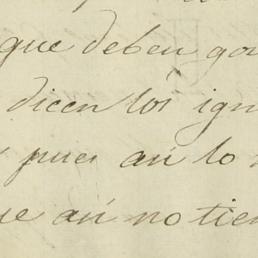 que deben go
dicen los ign
pues así lo
ue así no tien